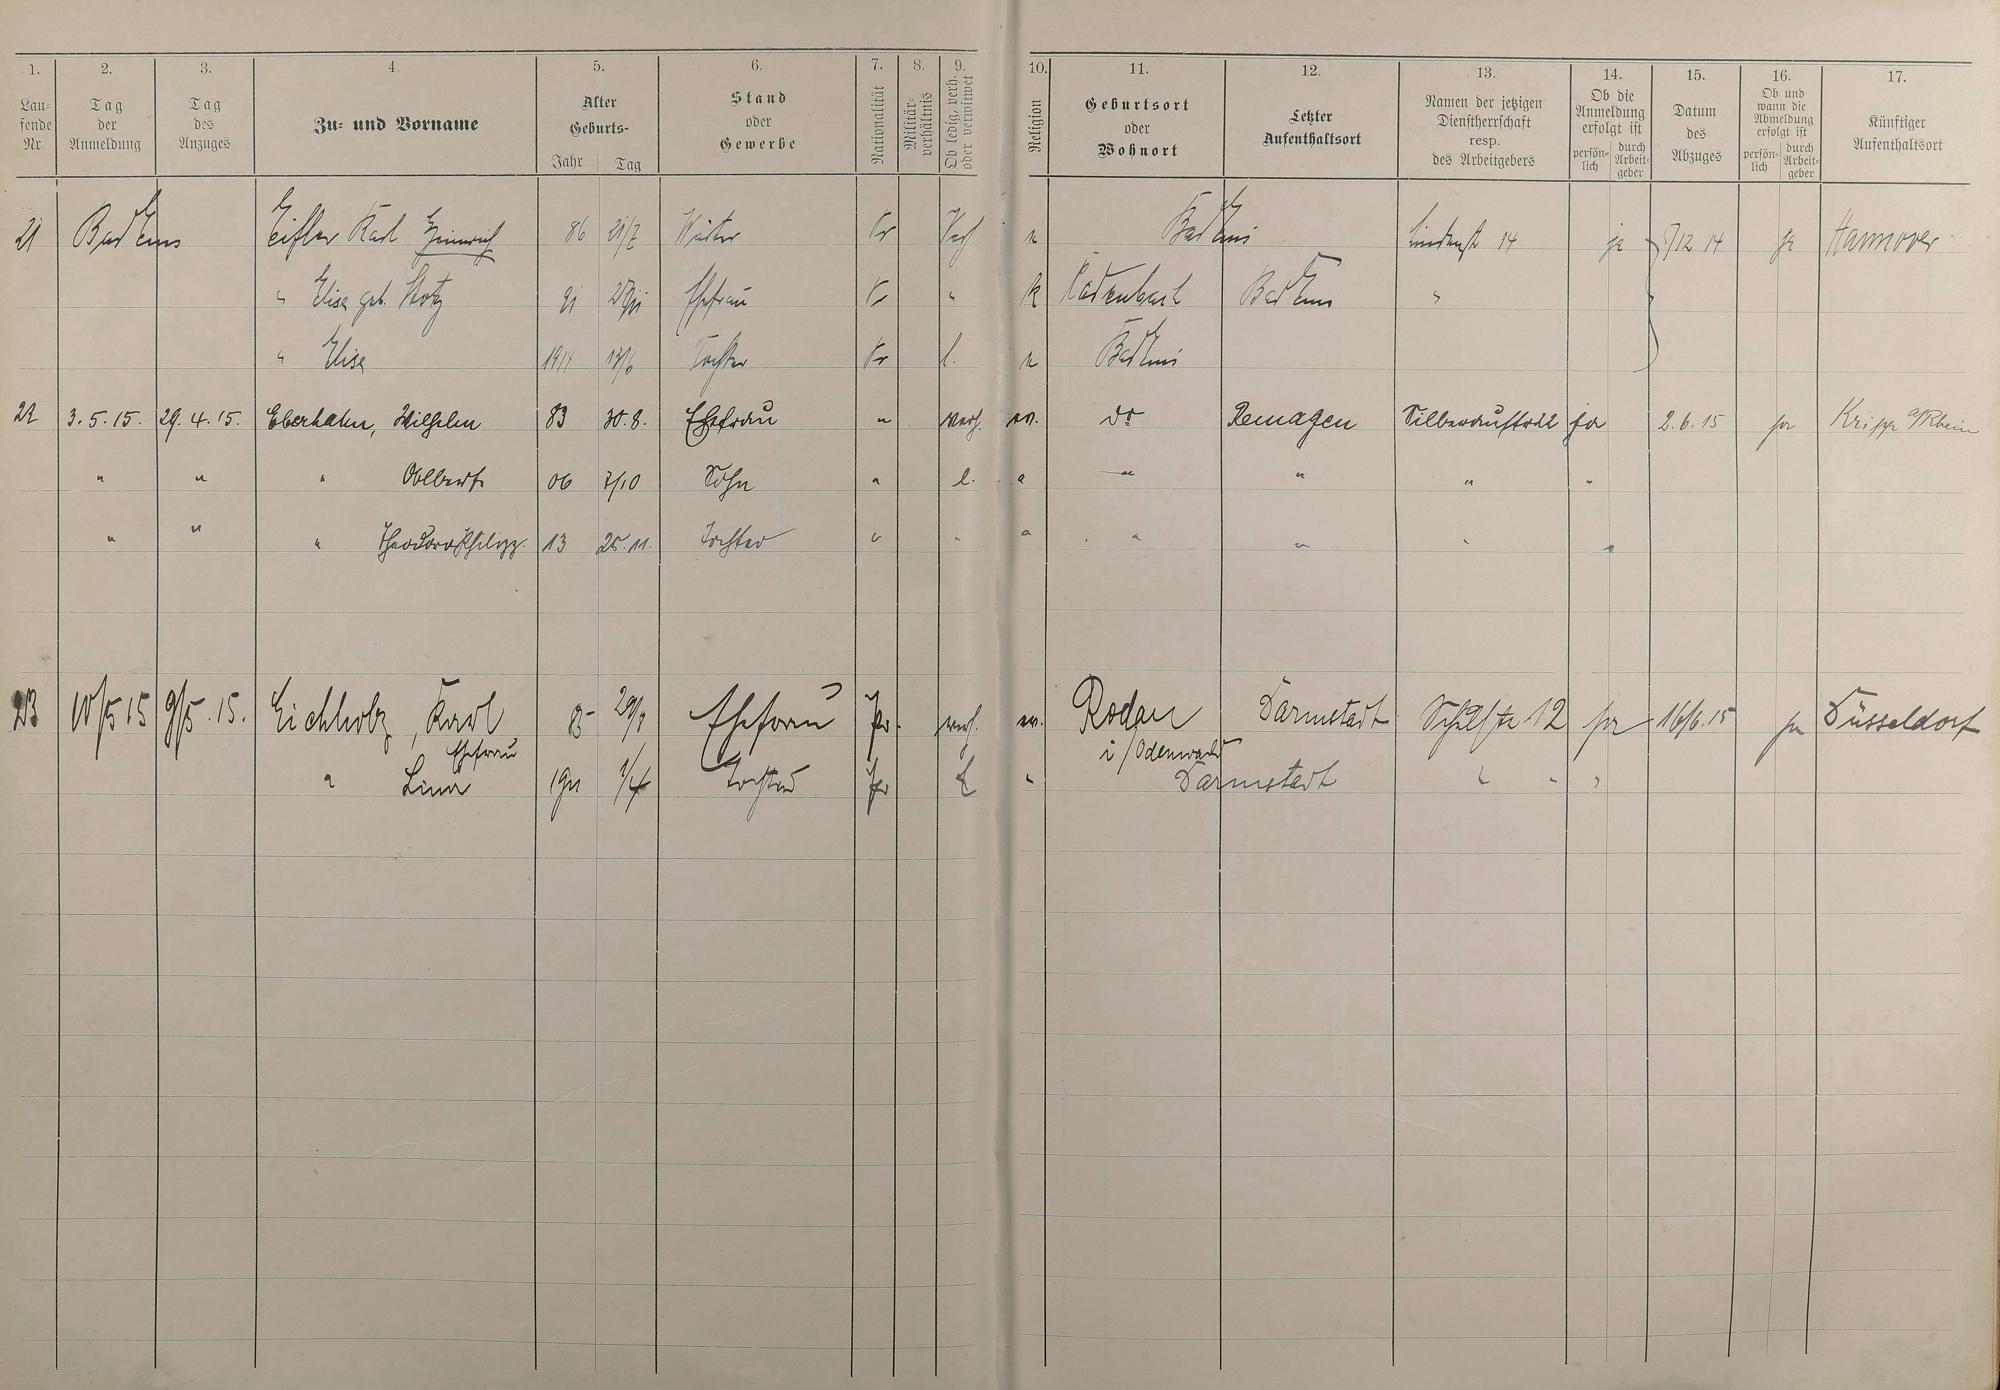 1. 2. 3. 4. 5. 6. 7. 8. 9. 10. 11. 12. 13. 14. 15. 16. 17.
Lau-
fende
Nr.
Tag
der
Anmeldung
Tag
des
Anzuges
Zu- und Vorname
Alter
Geburts-
Jahr Tag
Stand
oder
Gewerbe
Nationalität
Militär-
verhältnis
Ob ledig, verh.
oder verwitwet
Religion
Geburtsort
oder
Wohnort
Letzter
Aufenthaltsort
Namen der jetzigen
Dienstherrschaft
resp.
des Arbeitgebers
Ob die
Anmeldung
erfolgt ist
persön-
lich
durch
Arbeit-
geber
Datum
des
Abzuges
Ob und
wann die
Abmeldung
erfolgt ist
persön-
lich
durch
Arbeit-
geber
Künftiger
Aufenthaltsort
21 Bad Ems Eifler Karl Heinrich 86 21/7 Pr Bad Ems 14 ja /12 14 ja Hannover
" Elise geb. 91 Ehefrau Pr " k Kadenbach Bad Ems "
" Elise 1914 Tochter Pr l. Bad Ems
22 3.5.15. 29.4.15. Eberhahn, Wilhelm 83 30.8. Ehefrau " verh. ev. do Remagen ja 2.6.15 ja Kripp a/Rhein
" " " Albert 06 7/10 Sohn " l. " " " " "
" " " Theodora Philipp. 13 25.11. Tochter " " " " " " "
23 10/5 15 9/5.15. Eichholz, Karl 85 29/8 Ehefrau Pr. verh. ev. Rodau Darmstadt 12 ja 16/6.15 ja Düsseldorf
Ehefrau i/Odenwald
" Lina 1911 1/4 Tochter Pr l " Darmstadt " " "